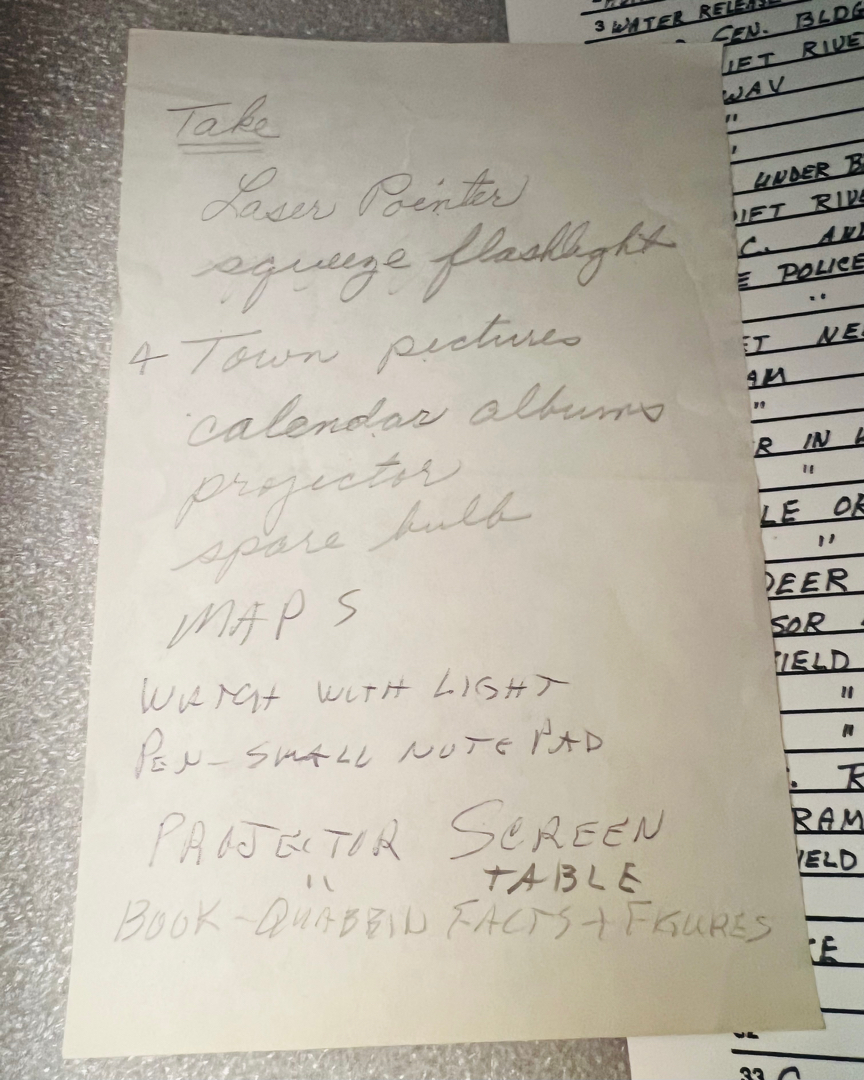 Take
Laser Pointer
squeeze flashlight
4 Town pictures
calendar albums
projector
spare bulb
MAPS
WATCH WITH LIGHT
PEN - SMALL NOTE PAD
PROJECTOR SCREEN
" TABLE
BOOK - QUABBIN FACTS + FIGURES
3 WATER RELEASE
GEN. BLDG
WAV
"
UNDER
C.
POLICE
"
NE
"
IN
"
"
DEER
"
"
33